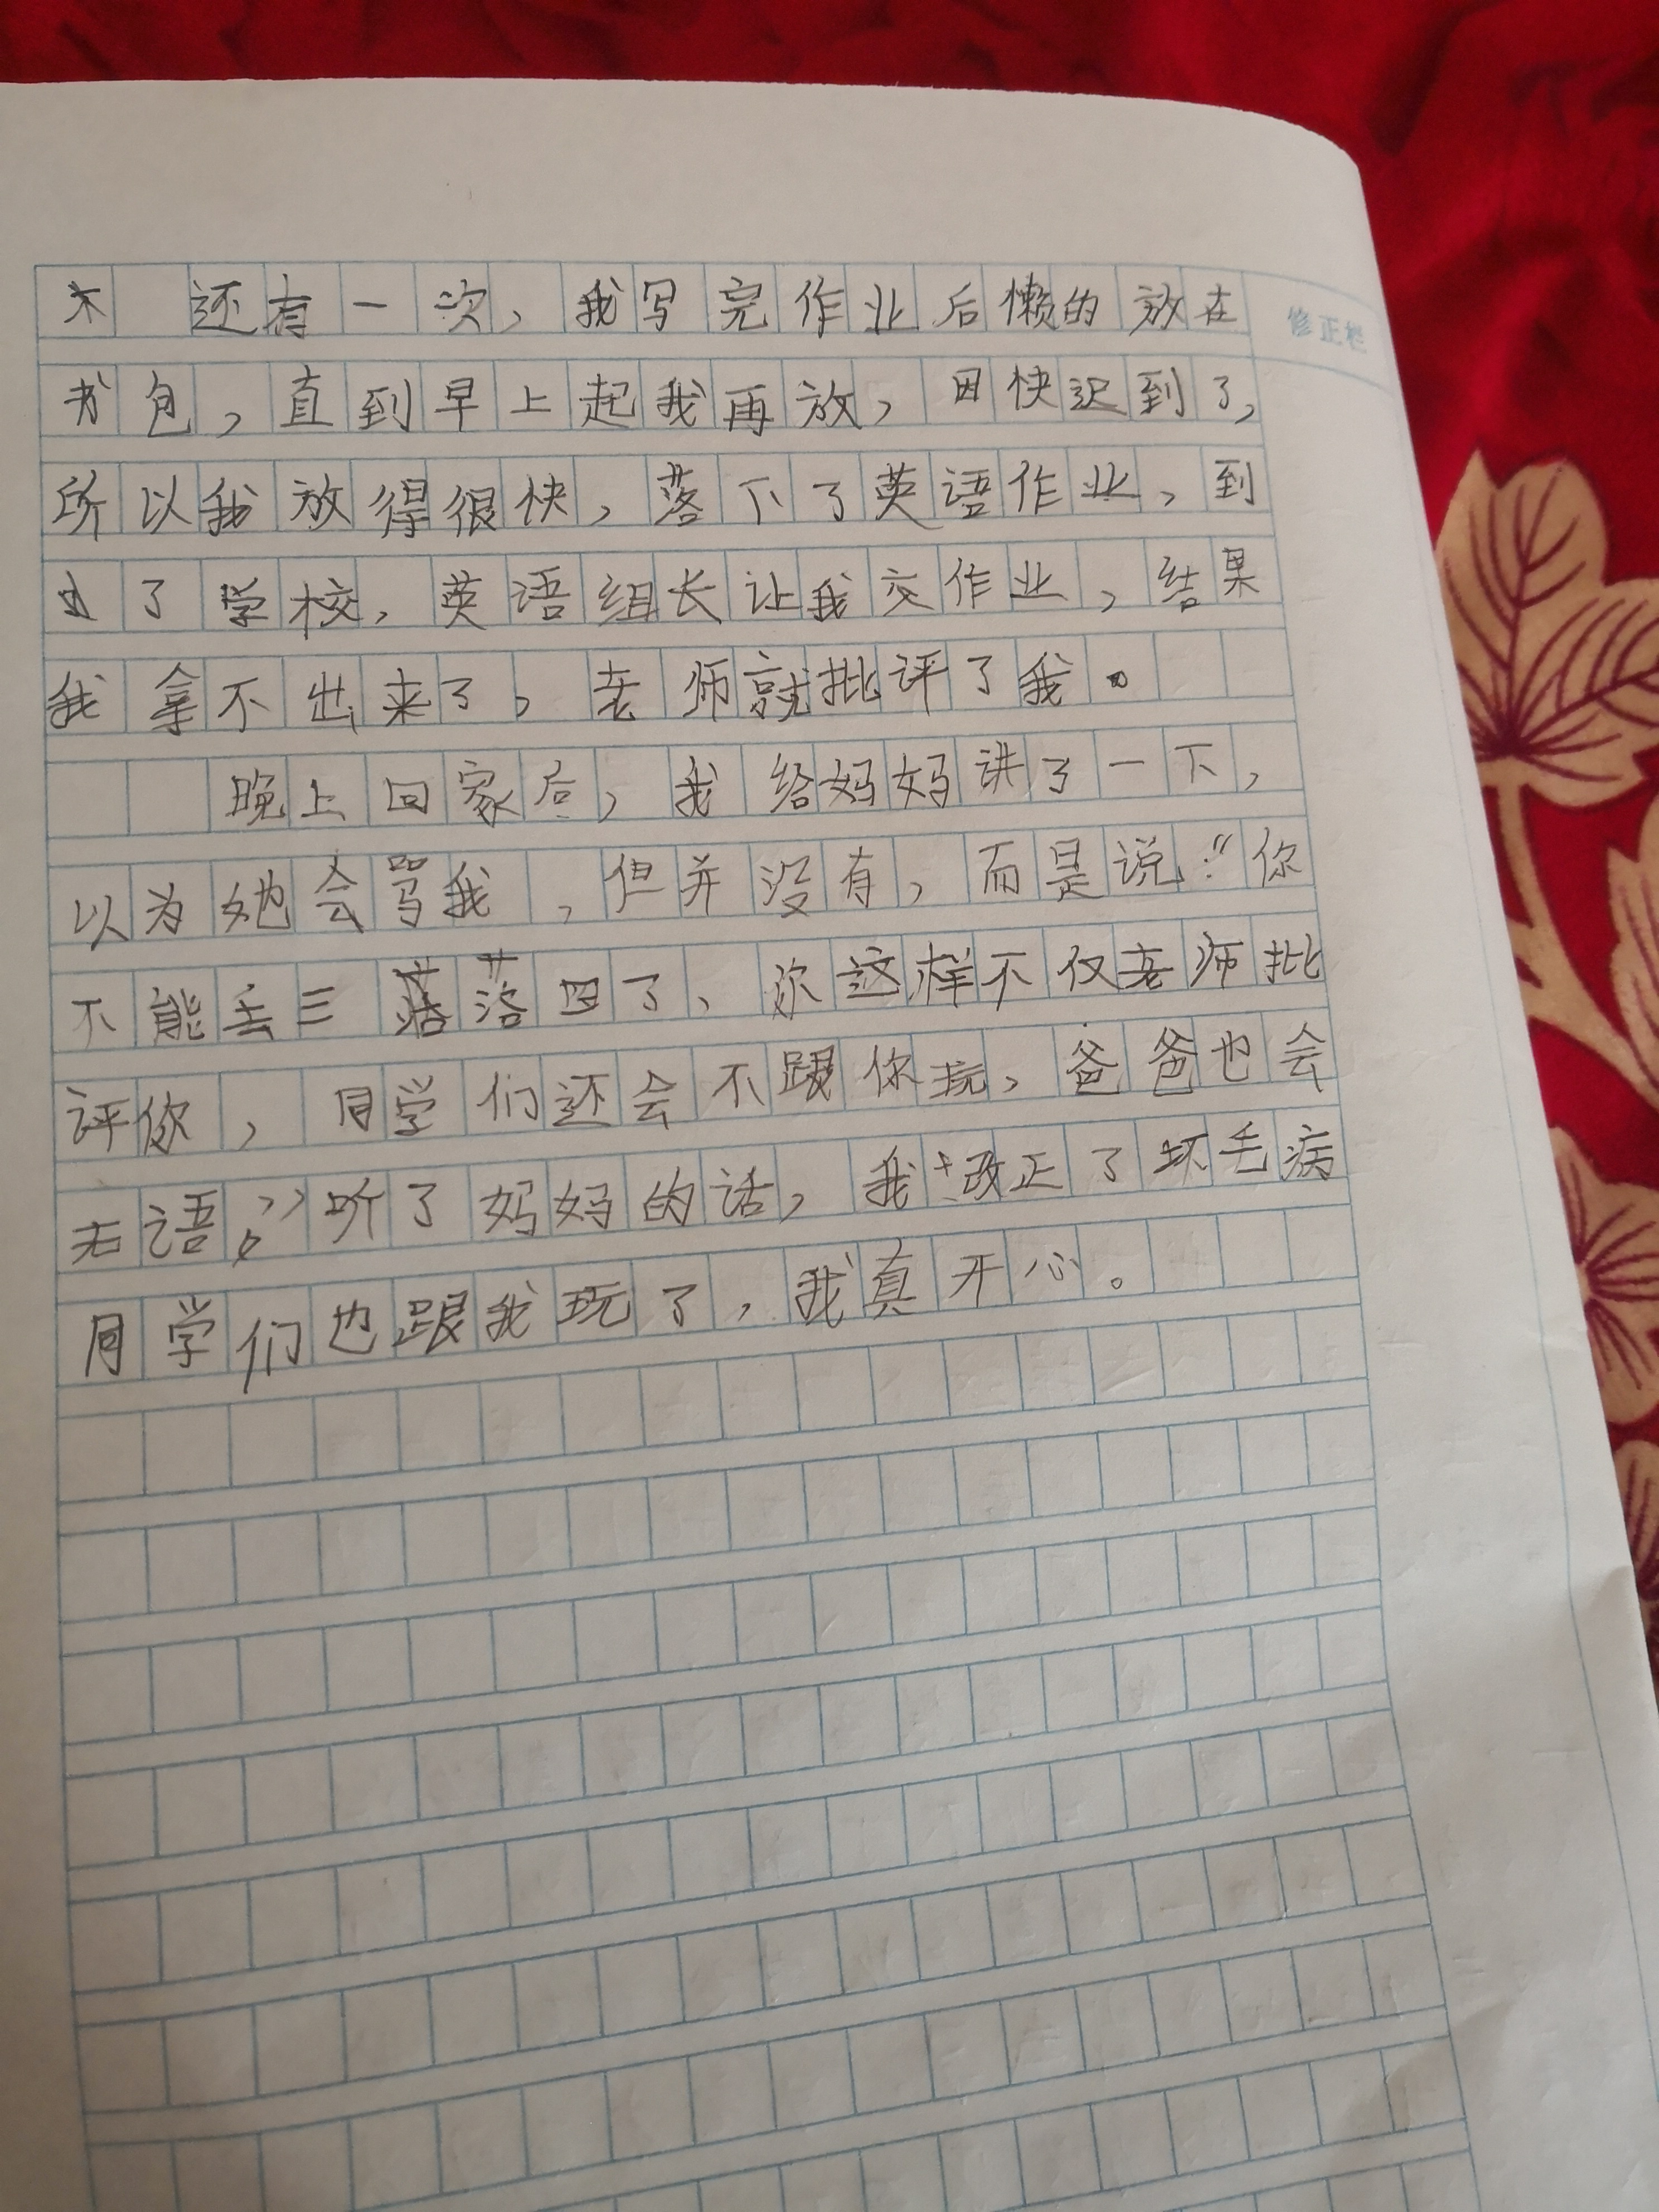 还有一次，我写完作业后懒的放在
书包，直到早上起我再放，因快迟到了，
所以我放得很快，落下了英语作业，到
了学校，英语组长让我交作业，结果
我拿不出来了，老师就批评了我。
晚上回家后，我给妈妈讲了一下，
以为她会骂我，但并没有，而是说：“你
不能丢三落落四了，你这样不仅老师批
评你，同学们还会不跟你玩，爸爸也会
无语。”听了妈妈的话，我改正了坏毛病
同学们也跟我玩了，我真开心。
修正栏